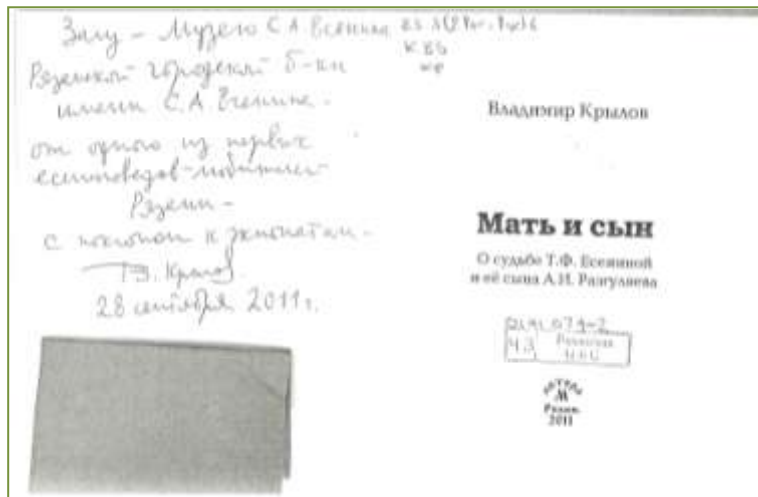 Залу - Музею С.А. Есенина
Рязанской городской б-ки
имени С.А. Есенина -
от одного из первых
есениноведов-любителей
Рязани -
с поклоном к экспонатам -
В. Крылов
28 сентября 2011 г.
Владимир Крылов
Мать и сын
О судьбе Т.Ф. Есениной
и её сына А.И. Разгуляева
Рязань
2011